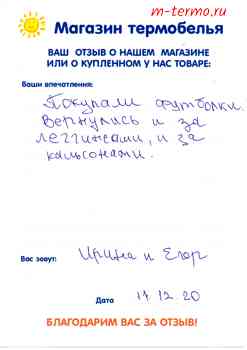 m-termo.ru
Магазин термобелья
ВАШ ОТЗЫВ О НАШЕМ МАГАЗИНЕ
ИЛИ О КУПЛЕННОМ У НАС ТОВАРЕ:
Ваши впечатления:
Покупали футболки.
Вернулись и за
леггинсами, и за
кальсонами.
Вас зовут: Ирина и Егор
Дата 11.12.20
БЛАГОДАРИМ ВАС ЗА ОТЗЫВ!